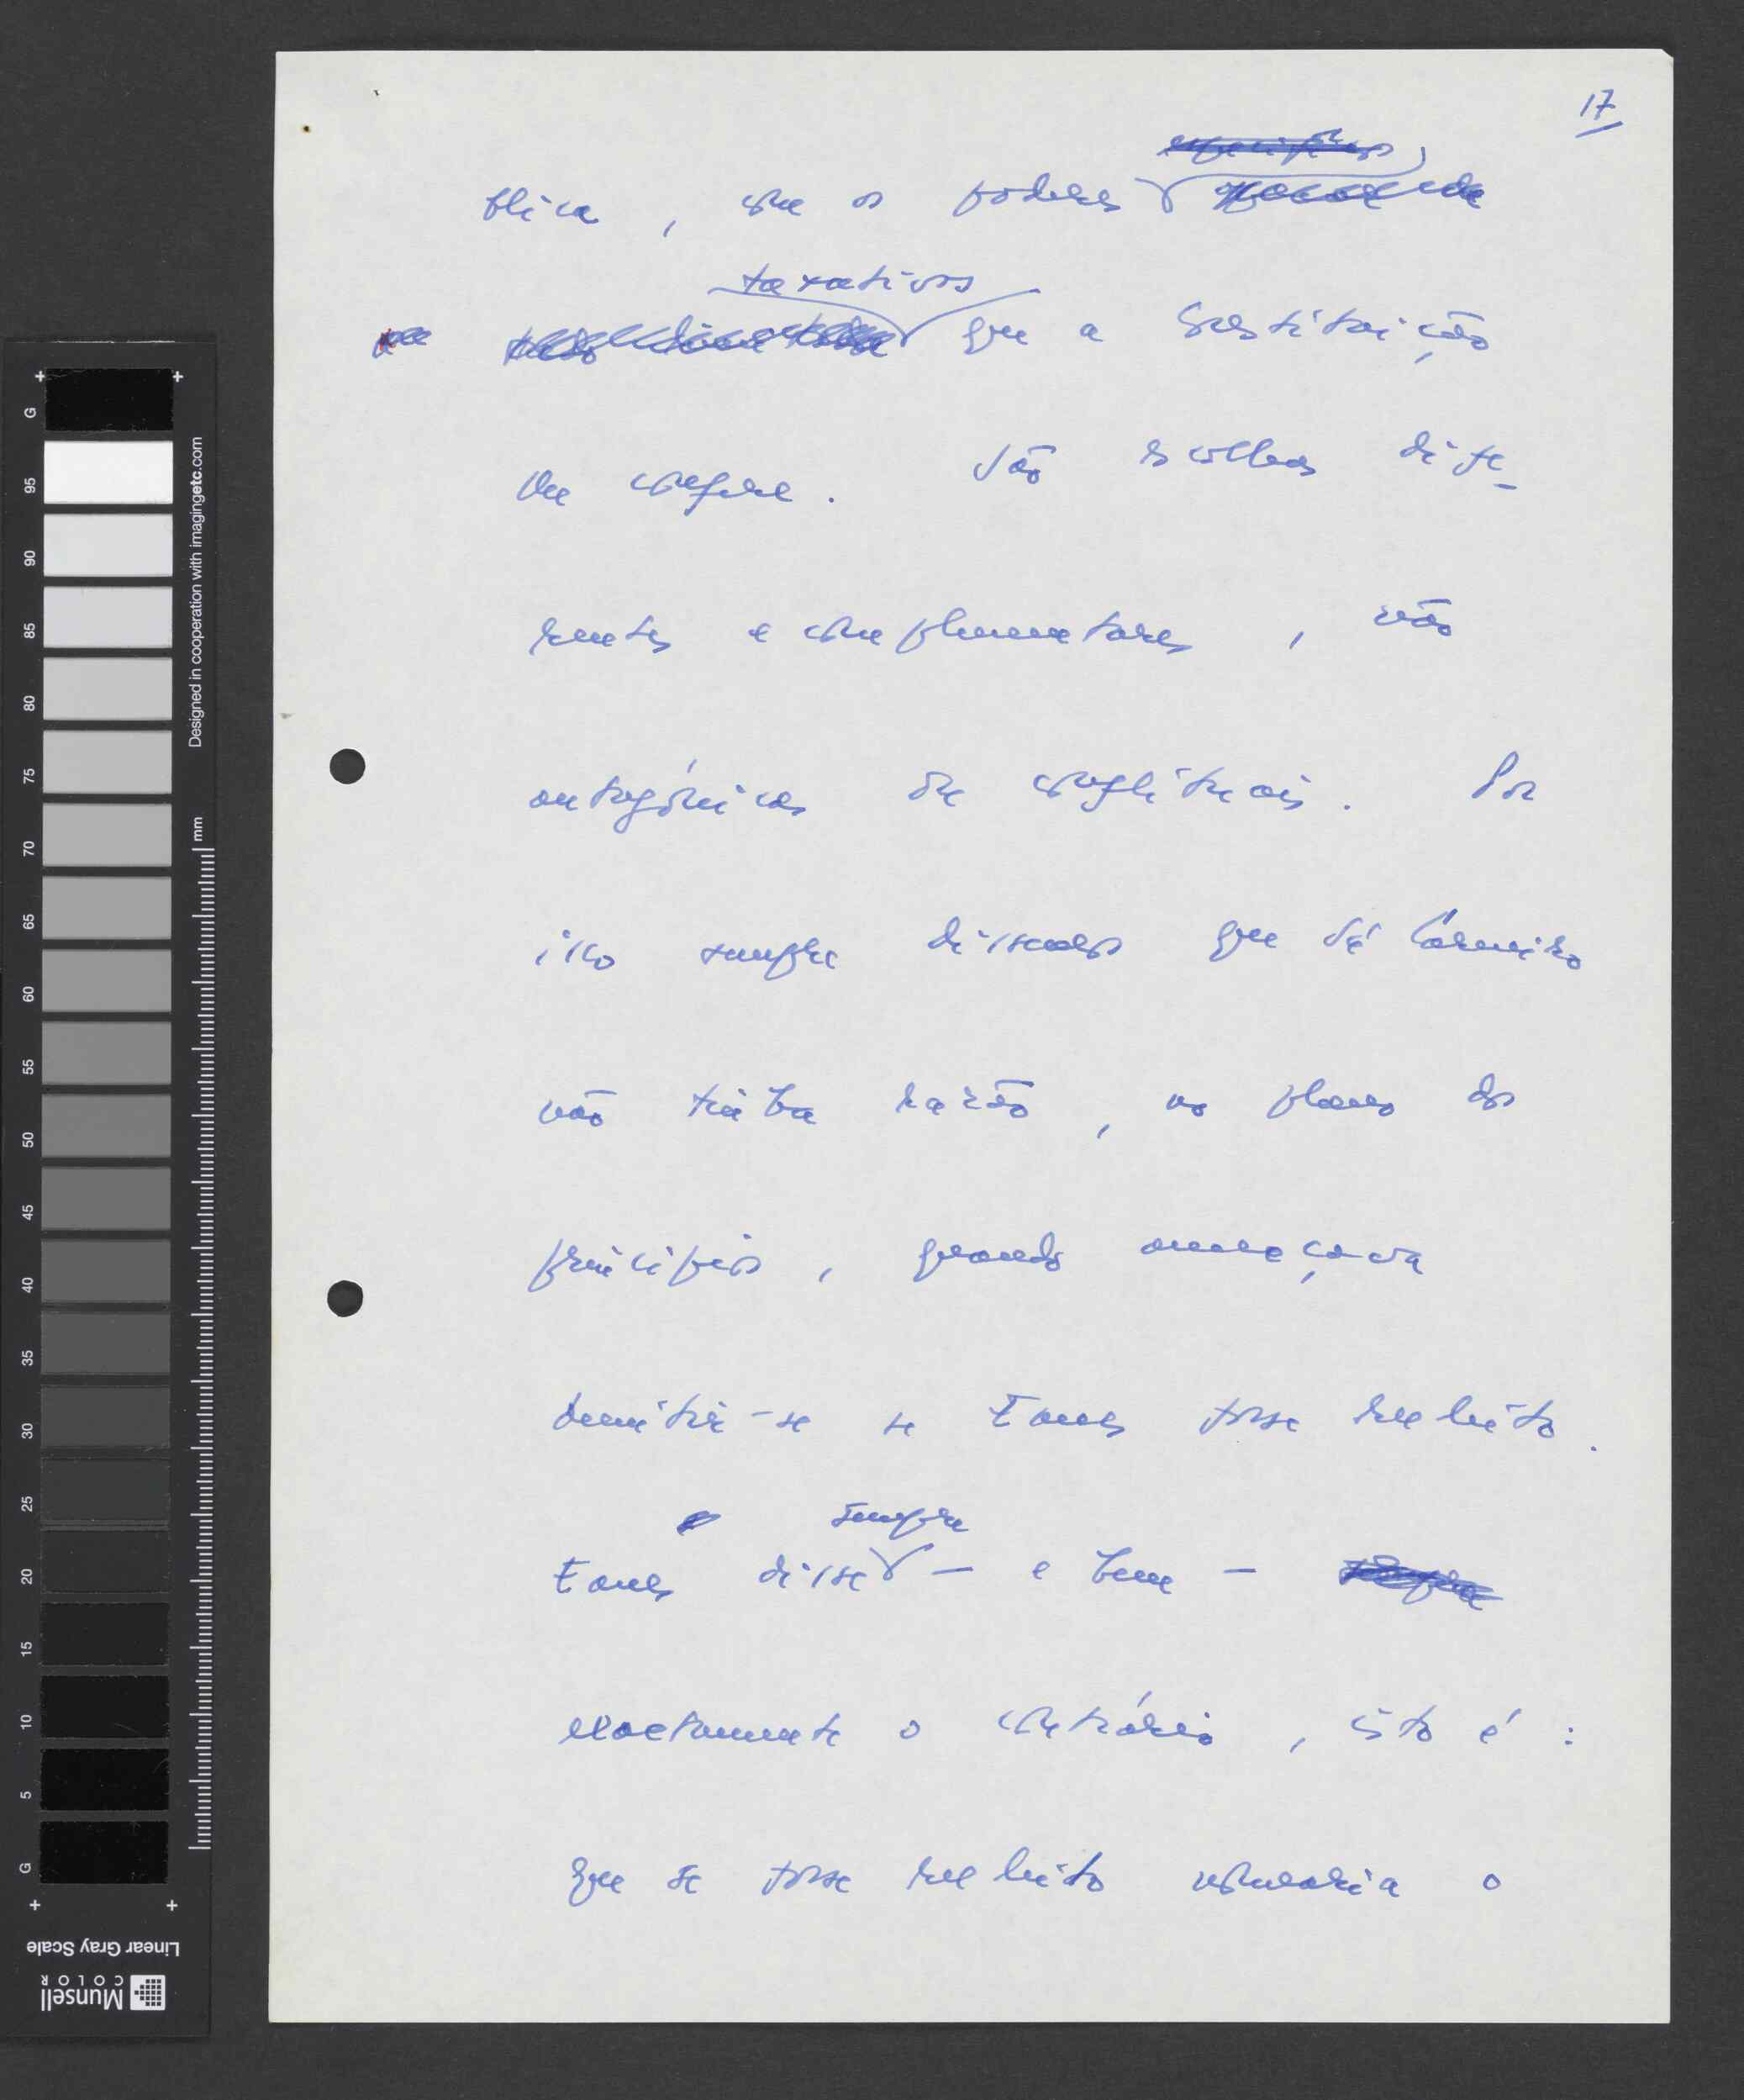 17
blica, com os poderes
taxativos
que a Constituição
lhe confere. São escolhas dife-
rentes e complementares, não
antagónicas ou conflituais. Por
isso sempre dissemos que Sá Carneiro
não tinha razão, no plano dos
princípios, quando ameaçava
demitir-se se Eanes fosse reeleito.
sempre
Eanes disse — e bem —
exactamente o contrário, isto é:
que se fosse reeleito nomearia o
G
95
90
85
80
75
70
65
60
55
50
45
40
35
30
25
20
15
10
5
G
Designed in cooperation with imagingetc.com
mm
Linear Gray Scale
Munsell
COLOR